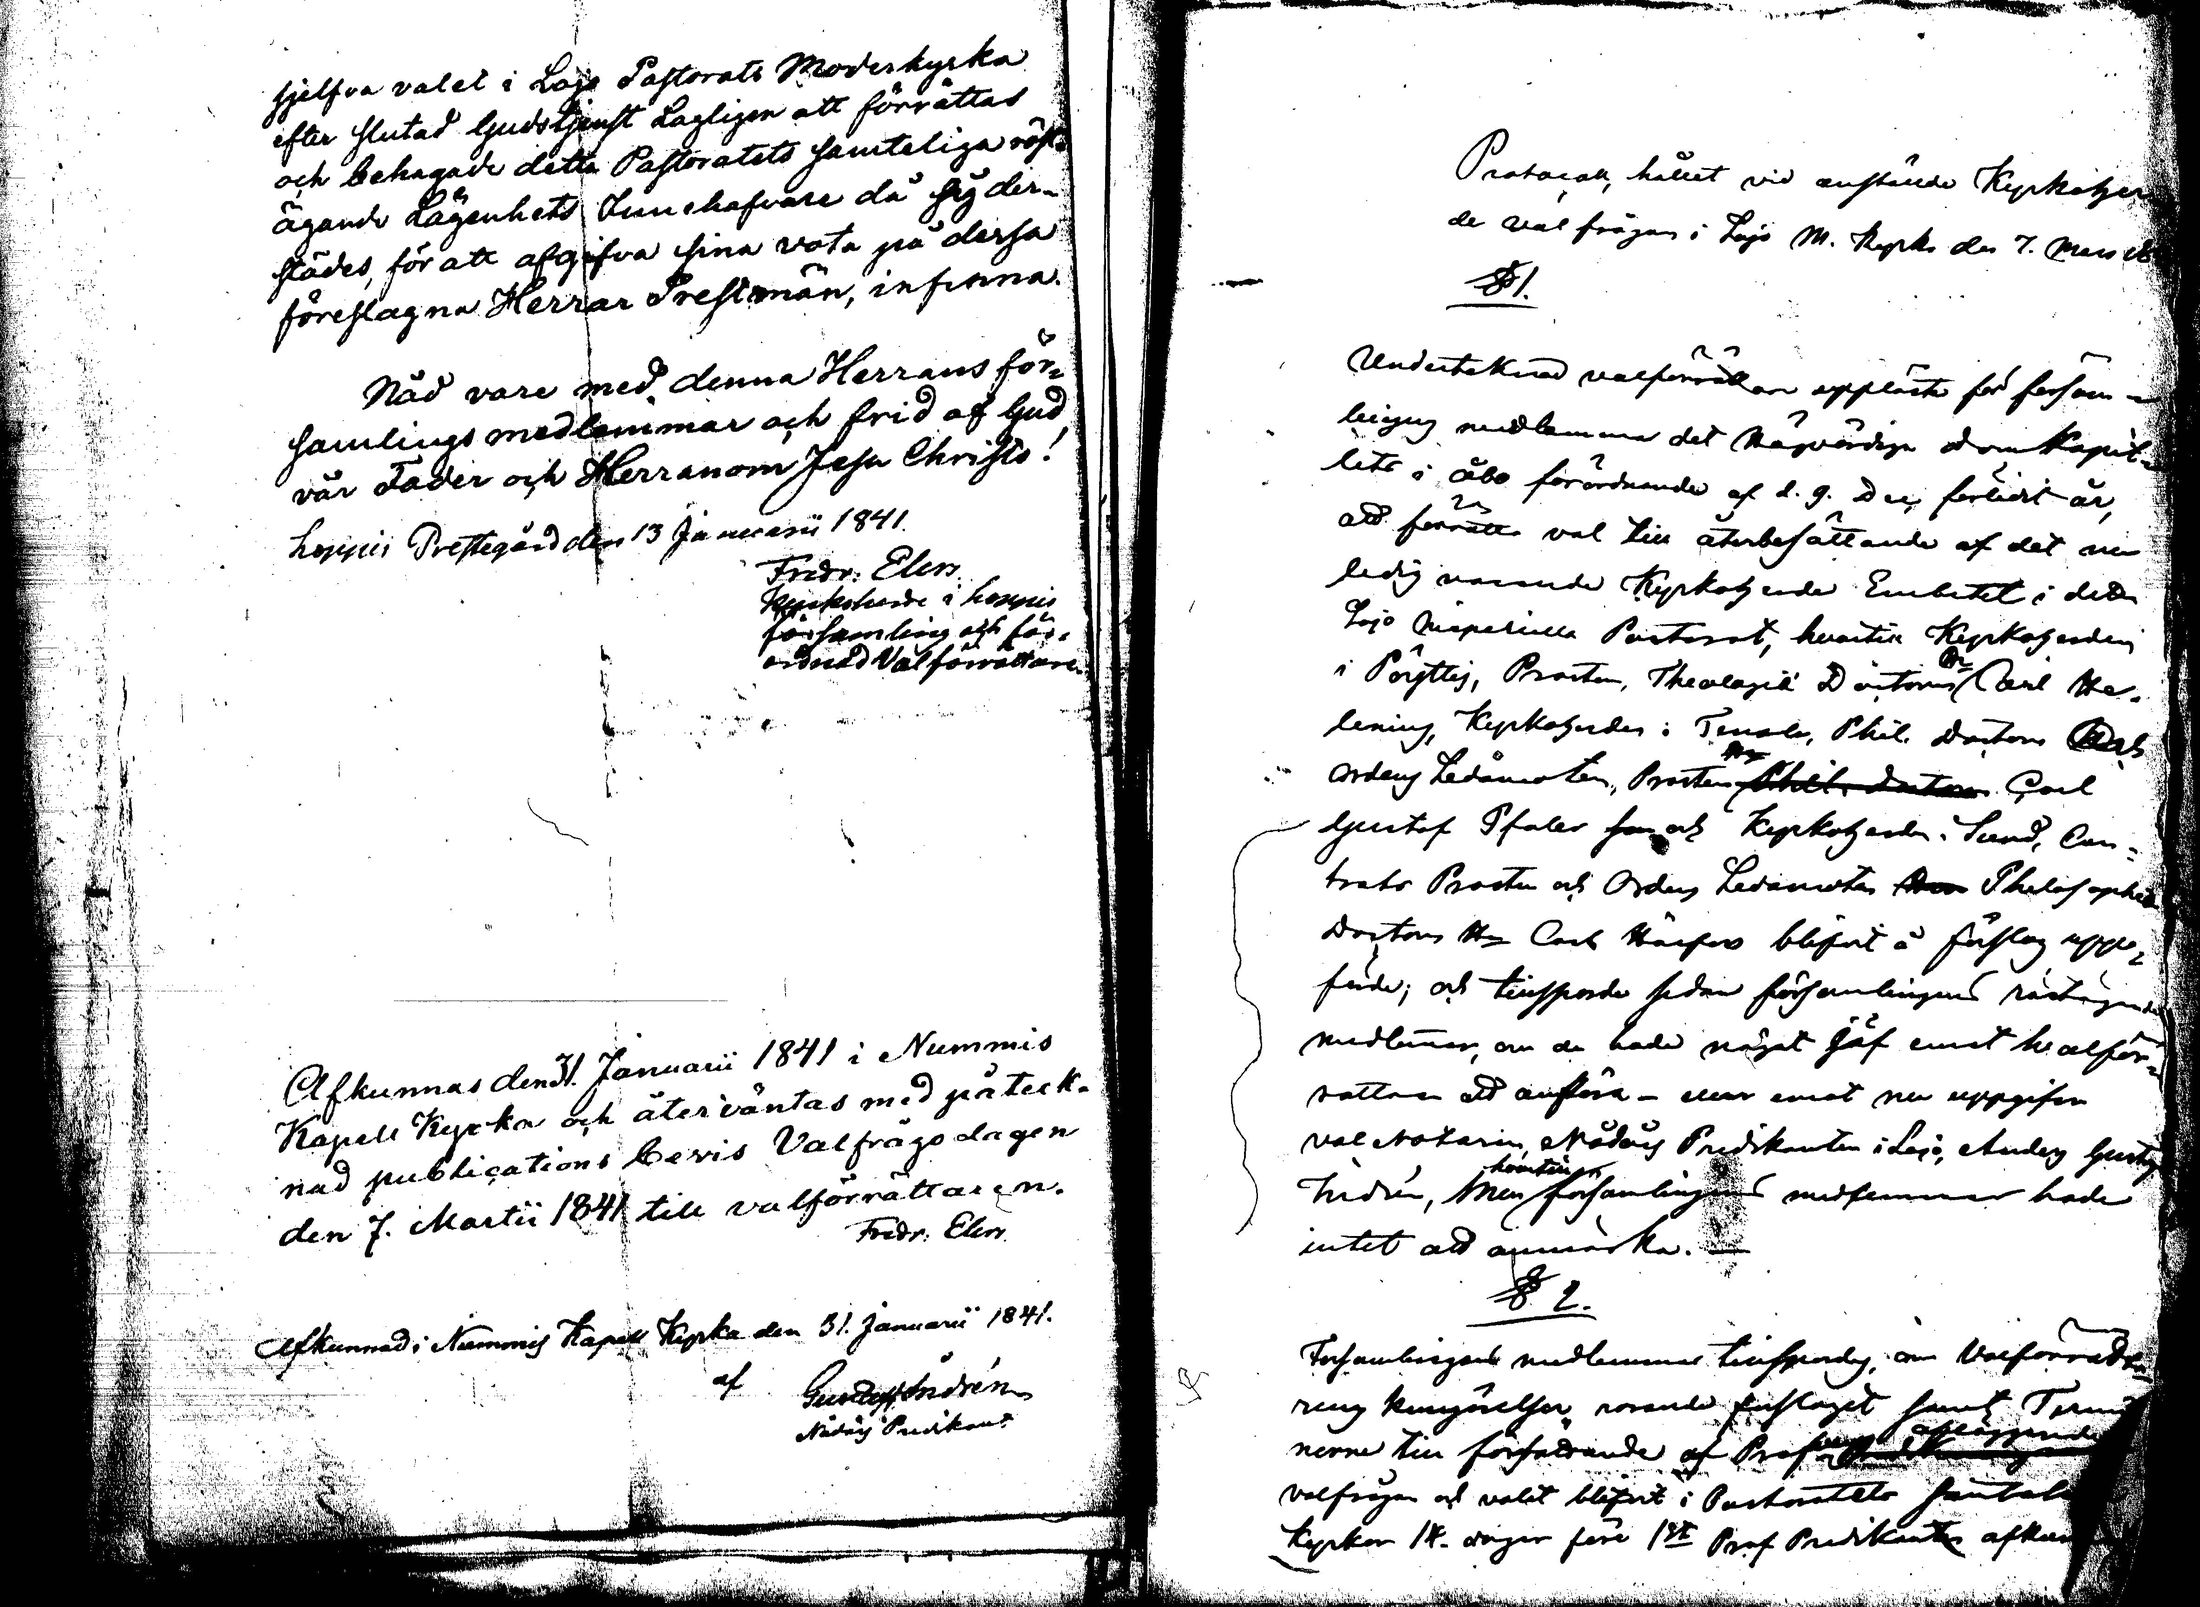 sjelfva valet i Lojo Pastorats Moderkyrka
efter slutad Gudstjenst Lagligen att förrättas
och behagade detta Pastoratets samteliga röst-
ägande Lägenhets Innehafvare då sig der-
städes, för att afgifva sina vota på dessa
föreslagna Herrar Prestmän, infinna.
Nåd vare med denna Herrans för-
samlings medlemmar och frid af Gud
vår Fader och Herranom Jesu Christo!
Loppis Prestegård den 13 Januarii 1841.
Fredr: Elers
Kyrkoherde i Loppis
församling och för-
ordnad Valförrättare.
Afkunnas den 31. Januarii 1841 i Nummis
Kapell Kyrka och återväntas med påteck-
nad publications bevis Valfrågodagen
den 7. Martii 1841 till valförrättaren.
Fredr: Elers
Afkunnad i Nummis Kapell Kyrka den 31. Januarii 1841.
af Gustaf Indrén
Nådårs Predikant
Protocoll, hållet vid anstäldt Kyrkoher
de val frågan i Lojo M. Kyrka den 7. Mars
§ 1.
Undertecknad valförrättare uppläste för försam-
lingens medlemmar det Högvördiga DomKapit-
lets i Åbo förordnande af d. 9. Dec. förledit år,
att förrätta val till återbesättande af det nu
ledig varande Kyrkoherde Embetet i detta
Lojo Pastorat, hvartill Kyrkoherden
i Pöyttis, Prosten, Theologiæ Doctoren Hr Carl He-
lenius, Kyrkoherden i Tenala, Phil. Doctorn och
Ordens Ledamoten, Prosten Hr Phil. Doctorn Carl
Gustaf Pfaler samt Kyrkoherden i Sund, Con-
trats Prosten och Ordens Ledamoten Philosophiæ
Doctorn Hr Carl blifvit å förslag uppe-
förde; och tillsporde sedan församlingens röstägande
medlemmar, om de hade något jäf emot valför-
rättaren att anföra – eller emot nu uppgifven
val Notarien, Nådårs Predikanten i Lojo, Anders Gustaf
Indrén, Men hvartill församlingens medlemmar hade
intet att anmärka. –
§ 2.
Församlingens medlemmar tillspordes, om Valförrätta-
rens kungörelser rörande förslaget samt Termi
nerne till af Prof afläggande
valfrågan och valet blifvit i Pastoratets samtel
Kyrkor 14. dagar före 1sta Prof Predikanten afkun